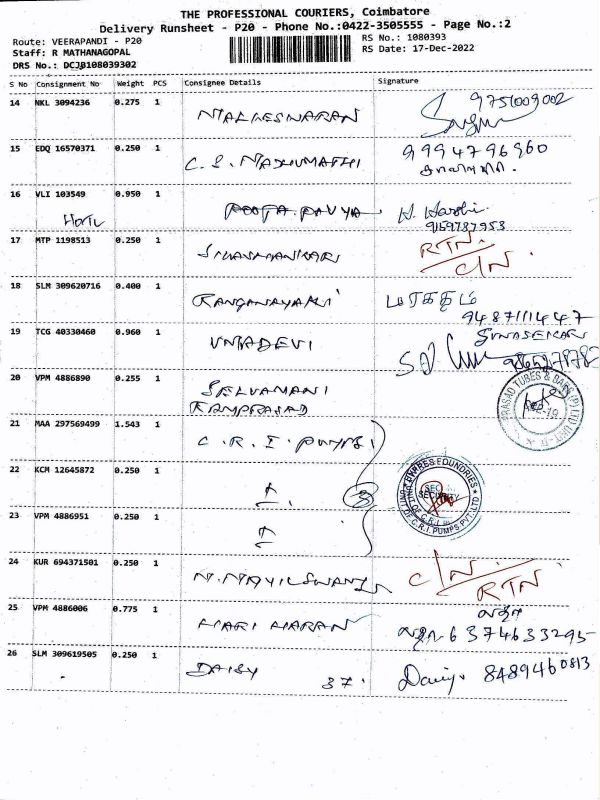 THE PROFESSIONAL COURIERS, Coimbatore
Delivery Runsheet - P20 - Phone No.:0422-3505555 - Page No.:2
Route: VEERAPANDI - P20
Staff: R MATHANAGOPAL
DRS No.: DCJB108039302
RS No.: 1080393
RS Date: 17-Dec-2022
S No Consignment No Weight PCS Consignee Details Signature
14 NKL 3094236 0.275 1 MALLESWARAN 9751009002
15 EDQ 16570371 0.250 1 C. S. MADHUMATHI 9994796960
16 VLI 103549 0.950 1 POOJA. DAVYA H. Harshi
9159787953
17 MTP 1198513 0.250 1 SIVASHANKARI RTN.
C/N.
18 SLM 309620716 0.400 1 RANGANAYAKI மரகதம்
9487111447
19 TCG 40330460 0.960 1 UMADEVI GUNASEKARAN
20 VPM 4886890 0.255 1 SELVAMANI
RAMPRASAD
PRASAD TUBES & BARS (P) LTD UNIT-II
21 MAA 297569499 1.543 1 C. R. I. PUMPS
22 KCM 12645872 0.250 1 3
EXPRES FOUNDRIES
SECURITY
UNIT OF C.R.I. PUMPS PVT. LTD
23 VPM 4886951 0.250 1
24 KUR 694371501 0.250 1 N. MAYILSWAMY C/N.
RTN
25 VPM 4886006 0.775 1 HARI HARAN லதா
6374633295
26 SLM 309619505 0.250 1 DAISY 37. Daisy 8489460813